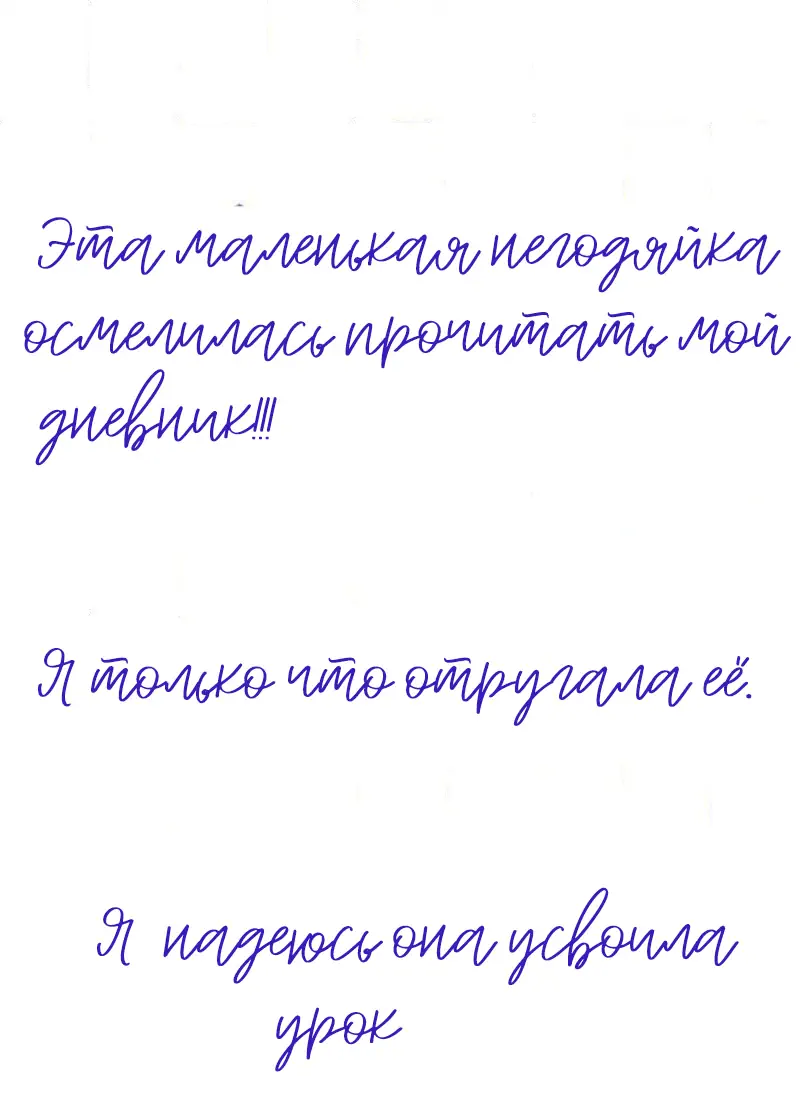 Эта маленькая негодяйка
осмелилась прочитать мой
дневник!!!
Я только что отругала её.
Я надеюсь она усвоила
урок